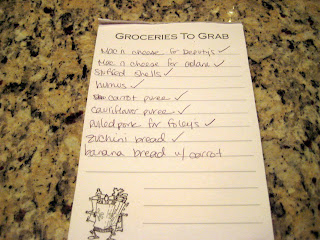 GROCERIES TO GRAB
Mac n cheese for Deputys ✓
Mac n cheese for adam ✓
Stuffed shells ✓
humus ✓
carrot puree ✓
cauliflower puree ✓
pulled pork for Foleys ✓
zuchini bread ✓
banana bread w/ carrot